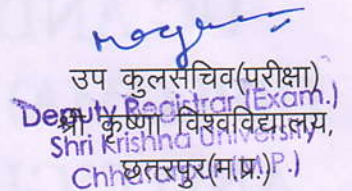 उप कुलसचिव(परीक्षा)
Deputy Registrar (Exam.)
श्री कृष्णा विश्वविद्यालय,
Shri Krishna University
छतरपुर(म.प्र.)
Chhatarpur (M.P.)